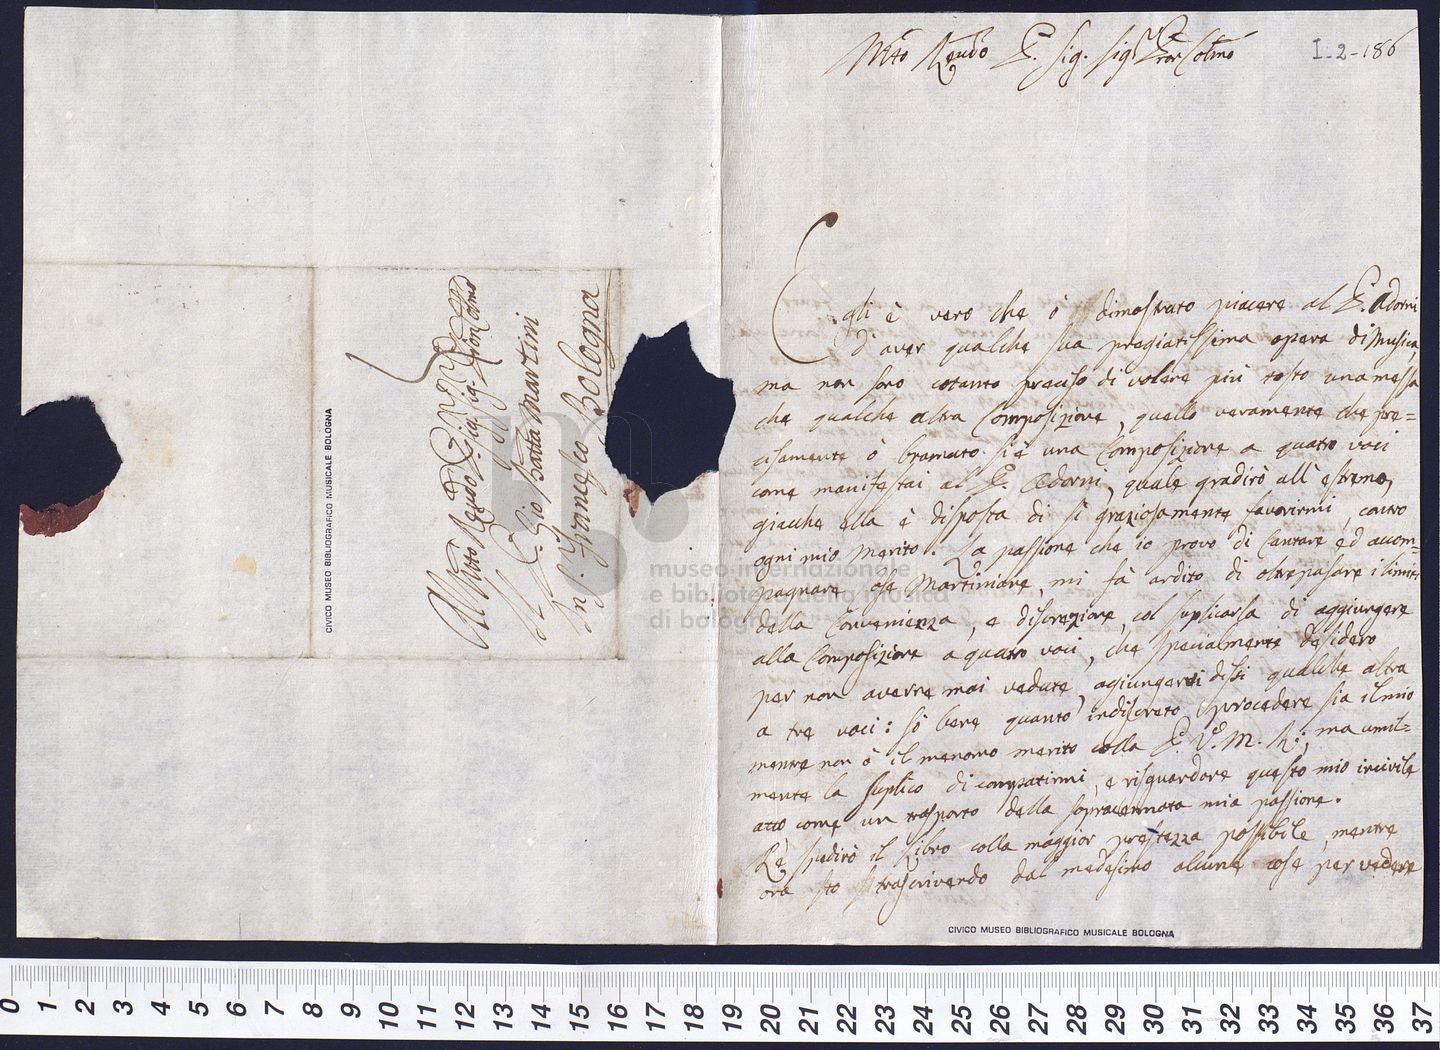 Al Mto Rendo P. Sig. Sig. Pron Colmo
Il P. Gio Batta Martini
In S. Franceso Bologna
CIVICO MUSEO BIBLIOGRAFICO MUSICALE BOLOGNA
Mto Rendo P. Sig. Sig. Pron Colmo
I-2-186
Egli è vero che ò dimostrato piacere al P. Adorni
d'aver qualche sua pregiatissima opera di Musica,
ma non sono cotanto preciso di volere più tosto una messa
che qualche altra Composizione, quello veramente che pre=
cisamente ò bramato si è una Composizione a quatro voci
come manifestai al P. Adorni, quale gradirò all'estremo,
giacche ella è disposta di sì graziosamente favorirmi, contro
ogni mio merito. La passione che io provo di Cantare ed accom=
pagnare ose Martiniane, mi fà ardito di oltrepasare i limiti
della Convenienza, e discrezione, col suplicarla di aggiungere
alla Composizione a quatro voci, che specialmente desidero
per non averne mai vedute, agiungervi dissi qualche altra
a tre voci: sò bene quanto indiscreto procedere sia il mio
mentre non ò il menomo merito colla P. V. M. R.; ma umil=
mente la suplico di compatirmi, e risguardare questo mio incivile
atto come un trasporto della sopracennata mia passione.
Le spedirò il Libro colla maggior prestezza possibile, mentre
ora sto trascrivendo dal medesimo alcune cose per vedere
CIVICO MUSEO BIBLIOGRAFICO MUSICALE BOLOGNA
museo internazionale
e biblioteca della musica
di bologna
0 1 2 3 4 5 6 7 8 9 10 11 12 13 14 15 16 17 18 19 20 21 22 23 24 25 26 27 28 29 30 31 32 33 34 35 36 37